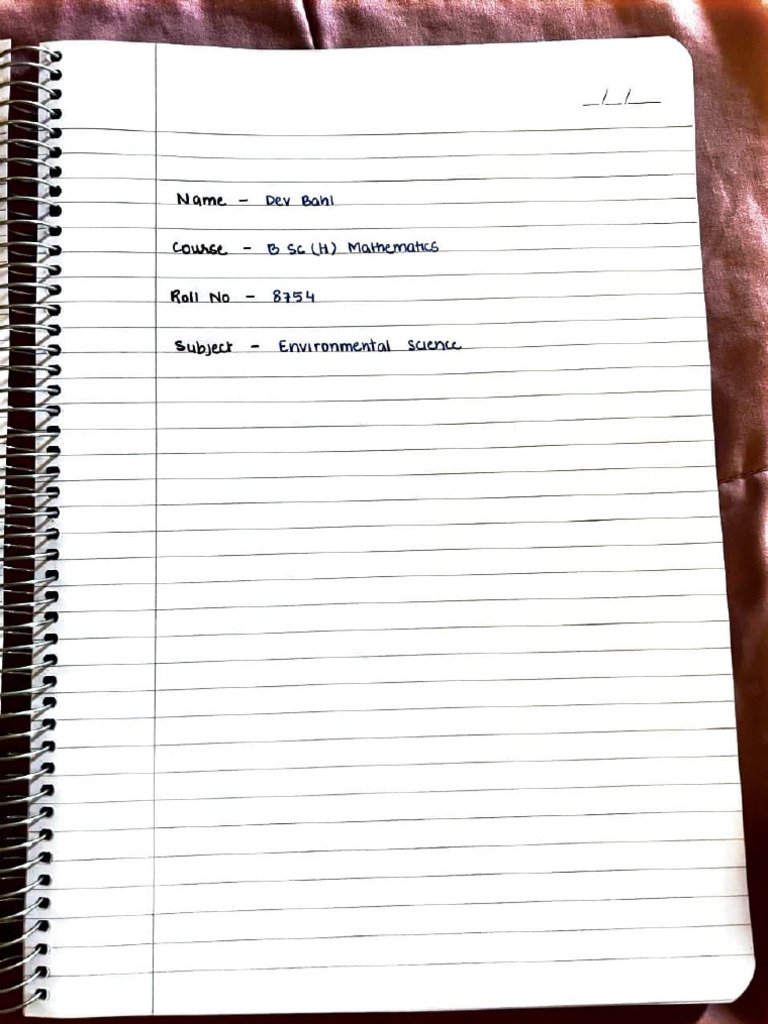 _/_/__
Name - Dev Bahl
Course - B Sc (H) Mathematics
Roll No - 8754
Subject - Environmental Science